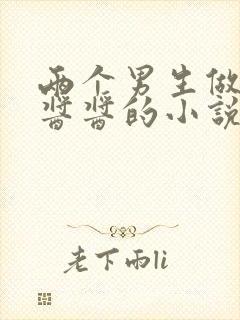 两个男生做
酱酱的小说
老下雨li